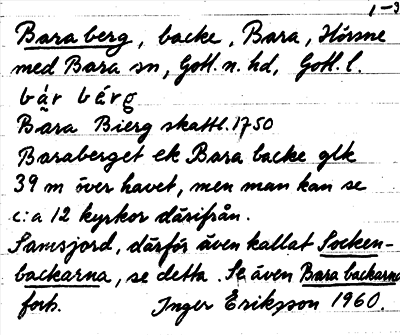 1-3
Bara berg, backe, Bara, Hörsne
med Bara sn, Gotl. n. hd, Gotl. l.
bár bérg
Bara Bierg skattl. 1750
Baraberget ek Bara backe glk
39 m över havet, men man kan se
c:a 12 kyrkor därifrån.
Samsjord, därför även kallat Socken-
backarna, se detta. Se även Bara backarna
forts. Inger Eriksson 1960.